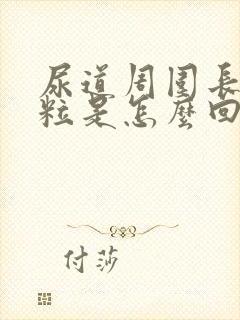 尿道周围長
粒是怎麼回
付莎